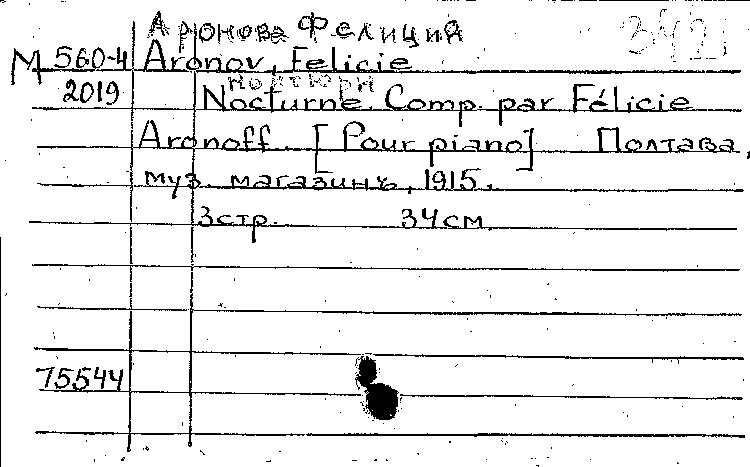 Аронова Фелиция
342
М 560-4 Aronov, Felicie
ноктюрн
2019 Nocturne. Comp. par Félicie
Aronoff. [Pour piano] Полтава,
муз. магазинъ, 1915.
3 стр. 34 см
75544